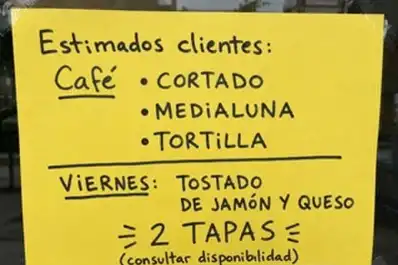 Estimados clientes:
Café • CORTADO
• MEDiALUNA
• TORTiLLA
ViERNES: TOSTADO
DE JAMÓN Y QUESO
2 TAPAS
(consultar disponibilidad)